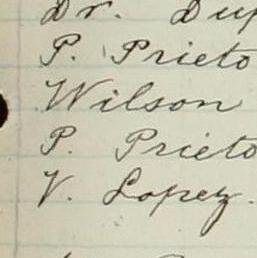 Dr. Dup
P. Prieto
Wilson
P. Prieto
V. Lopez.